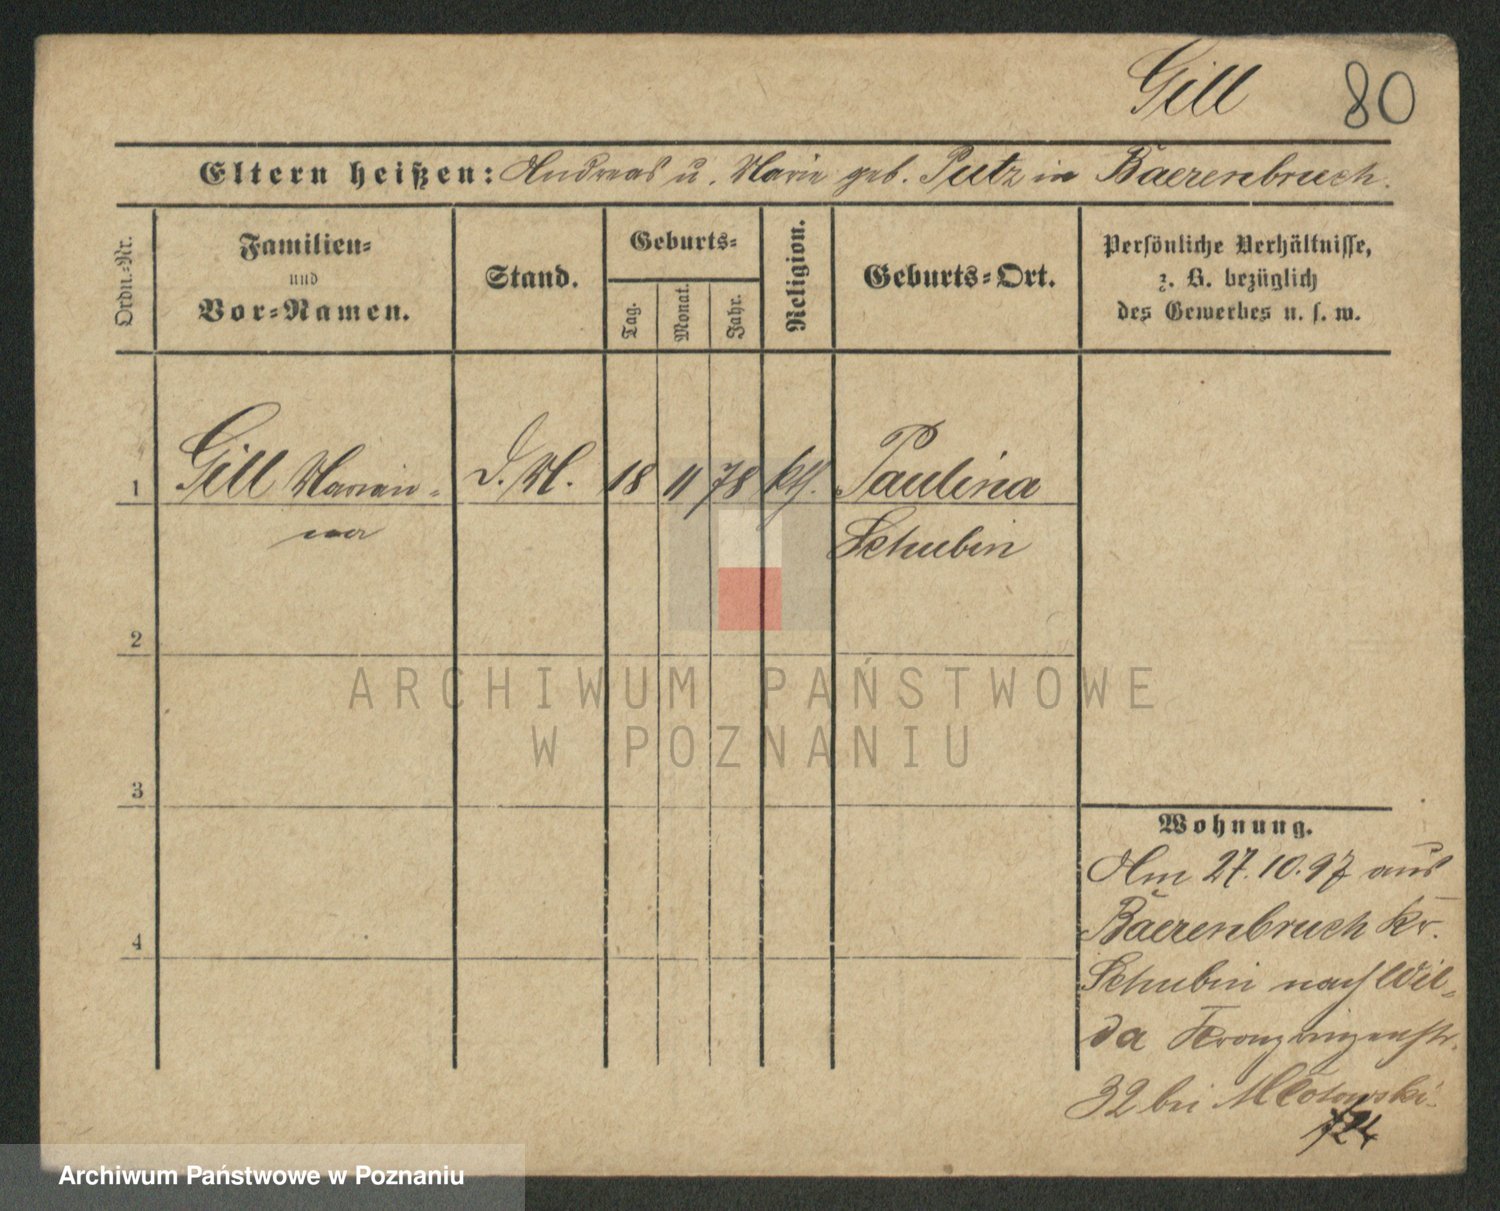 Gill 80
Eltern heißen: Andreas u. Marie geb. Putz in Baerenbruch.
Ordn.-Nr.
Familien-
und
Vor-Namen.
Stand.
Geburts-
Tag.
Monat.
Jahr.
Religion.
Geburts-Ort.
Persönliche Verhältnisse,
z. B. bezüglich
des Gewerbes u. s. w.
1 Gill Marian- D. M. 18 11 78 kth. Paulina
na Schubin
2
ARCHIWUM PAŃSTWOWE
W POZNANIU
3
Wohnung.
Am 27.10.97 aus
Baerenbruch Kr.
4
Schubin nach Wil-
da Kronprinzenstr.
32 bei Mlotowski
724
Archiwum Państwowe w Poznaniu